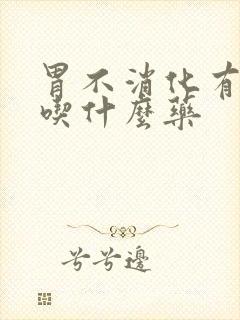 胃不消化有
喫什麼藥
兮兮邊